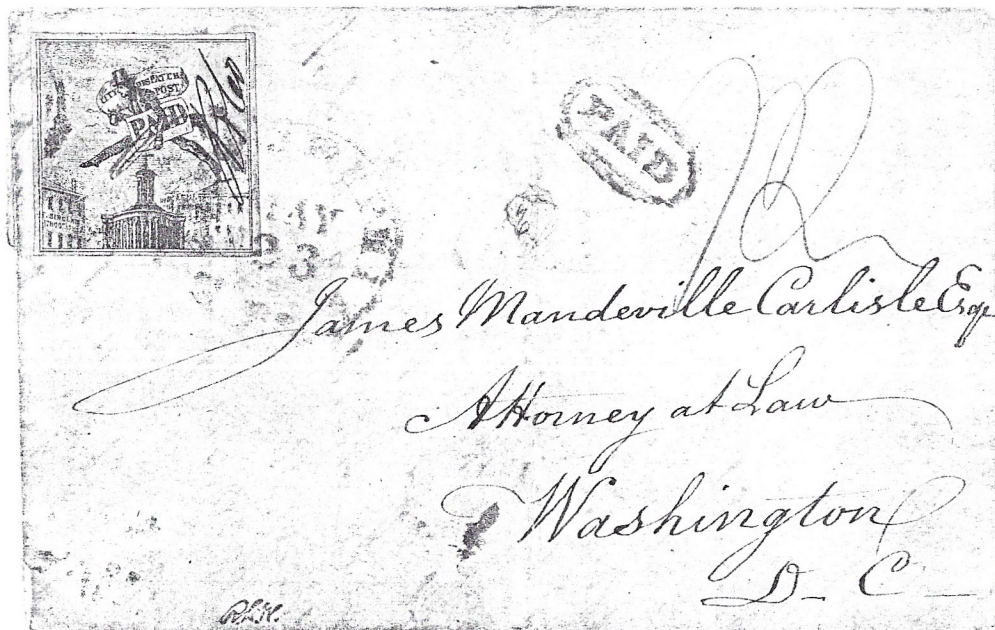 CITY DESPATCH
POST
PAID
PAID
12
AY
23
James Mandeville Carlisle Esqr
Attorney at Law
Washington
D. C.